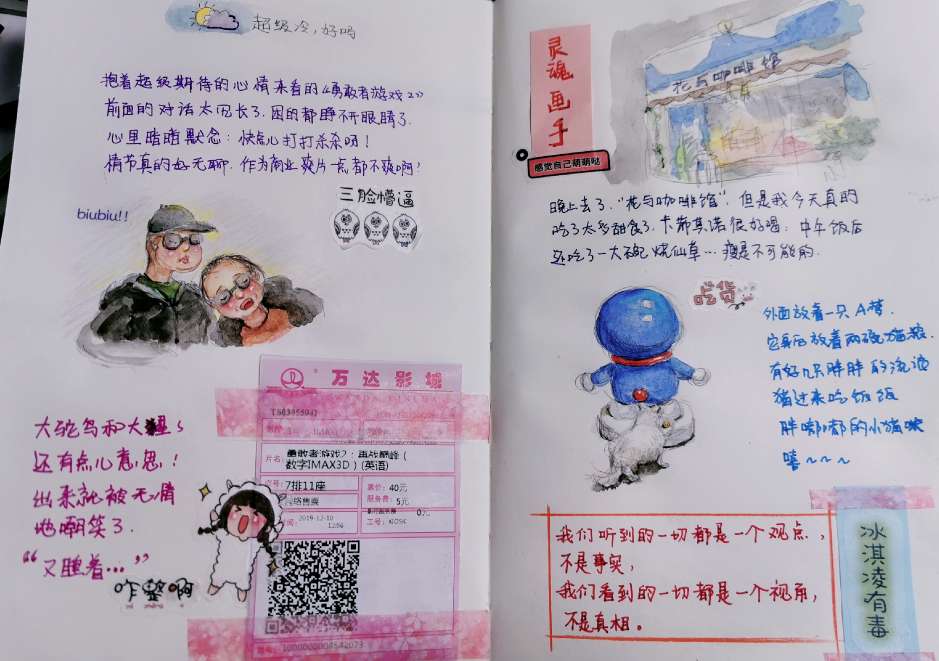 超级冷，好吗
抱着超级期待的心情来看的《勇敢者游戏2》
前面的对话太冗长了，困的都睁不开眼睛了，
心里暗暗默念：快点儿打打杀杀呀！
情节真的好无聊，作为商业爽片一点都不爽啊！
三脸懵逼
biubiu!!
大鸵鸟和大
还有点儿意思！
出来就被无情
地嘲笑了
“又睡着…”
咋整啊
万达影城
片名 勇敢者游戏2：再战巅峰（
数字IMAX3D）(英语)
7排11座
票价：40元
网络售票
服务费：5元
0元
2019-12-10
工号：KIOSK
灵魂画手
感觉自己萌萌哒
花与咖啡馆
晚上去了“花与咖啡馆”，但是我今天真的
吃了太多甜食了，卡布其诺很好喝，中午饭后
还吃了一大碗烧仙草…瘦是不可能的.
吃货
外面放着一只A梦.
它身后放着两碗猫粮
有好几只胖胖的流浪
猫过来吃饭饭
胖嘟嘟的小猫咪
嘻～～～
我们听到的一切都是一个观点，
不是事实，
我们看到的一切都是一个视角，
不是真相。
冰淇凌有毒